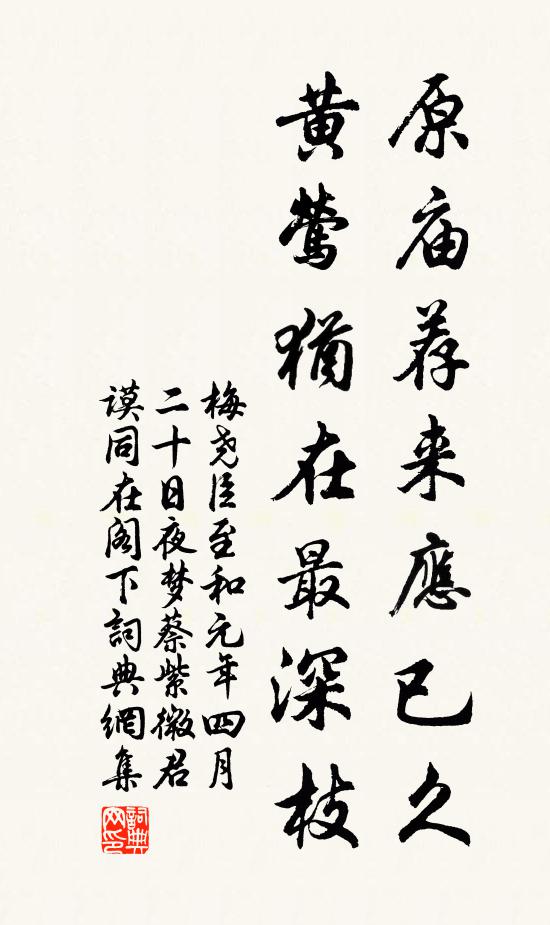 原庙荐来應已久
黄莺猶在最深枝
梅尧臣至和元年四月
二十日夜梦蔡紫微君
谟同在阁下詞典網集
詞典網印